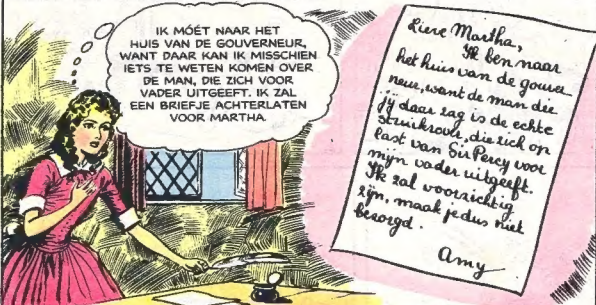 IK MÓÉT NAAR HET
HUIS VAN DE GOUVERNEUR,
WANT DAAR KAN IK MISSCHIEN
IETS TE WETEN KOMEN OVER
DE MAN, DIE ZICH VOOR
VADER UITGEEFT. IK ZAL
EEN BRIEFJE ACHTERLATEN
VOOR MARTHA.
Lieve Martha,
Ik ben naar
het huis van de gouver
neur, want de man die
jij daar zag is de echte
struikrover, die zich op
last van Sir Percy voor
mijn vader uitgeeft.
Ik zal voorzichtig
zijn, maak je dus niet
bezorgd.
Amy